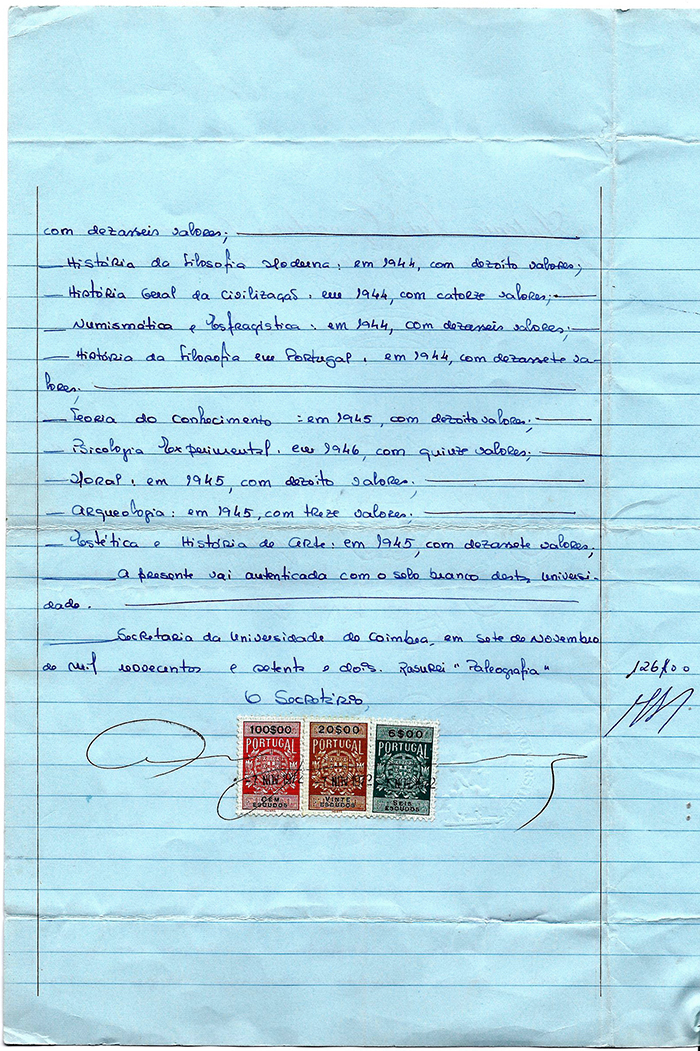 com dezasseis valores;
História da Filosofia Moderna: em 1944, com dezoito valores;
História Geral da Civilização: em 1944, com catorze valores;
Numismática e Esfragística: em 1944, com dezasseis valores;
História da Filosofia em Portugal: em 1944, com dezassete va-
lores;
Teoria do Conhecimento: em 1945, com dezoito valores;
Psicologia Experimental: em 1946, com quinze valores;
Moral: em 1945, com dezoito valores;
Arqueologia: em 1945, com treze valores;
Estética e História de Arte: em 1945, com dezassete valores;
A presente vai autenticada com o selo branco desta Universi-
dade.
Secretaria da Universidade de Coimbra, em sete de Novembro
de mil novecentos e setenta e dois. Rasurei "Paleografia"
126$00
O Secretário,
100$00 20$00 6$00
PORTUGAL PORTUGAL PORTUGAL
CEM ESCUDOS VINTE ESCUDOS SEIS ESCUDOS